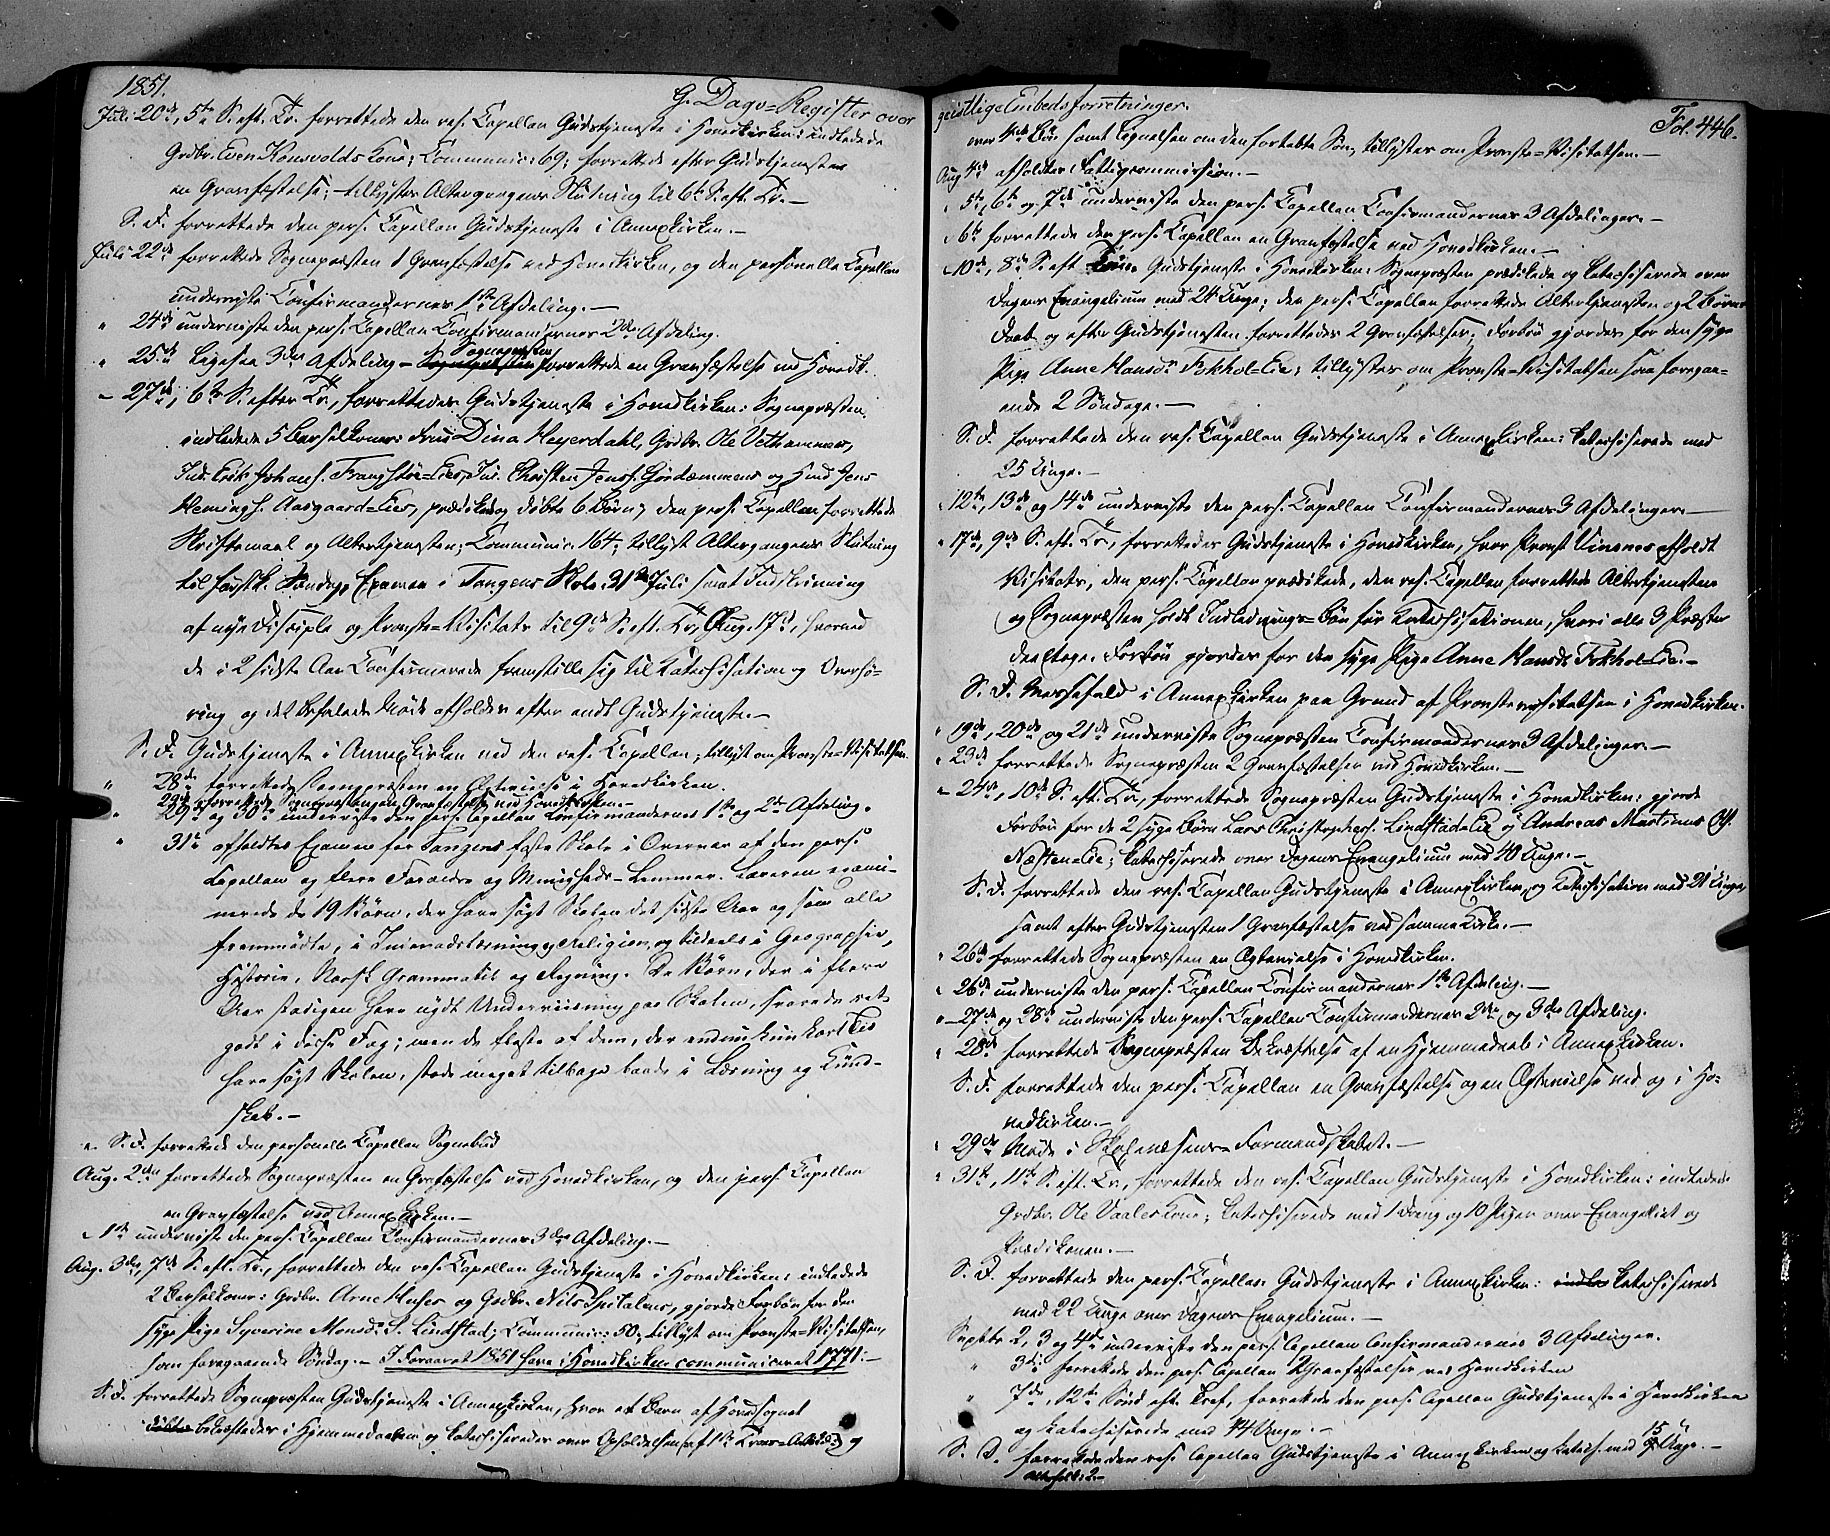 1851.
G. Dags=Register over
Juli 20de, 5te S. eft. Tr. forrettede den res. Capellan Gudstjeneste i Hovedkirken: indledede
Grdbr. Even Konsvolds Kone; Communic: 69; forrettede efter Gudstjenesten
en Gravfæstelse; tillyster Altergangens Slutning til 6te S. eft. Tr. —
S. D. forrettede den pers. Capellan Gudstjeneste i Annexkirken. —
Juli 22de forrettede Sognepræsten 1 Gravfæstelse ved Hovedkirken, og den personelle Capellan
underviste Confirmandernes 1ste Afdeling. —
" 24de underviste den pers. Capellan Confirmandernes 2den Afdeling.
" 25de Ligesaa 3die Afdeling — Sognepræsten forrettede en Gravfæstelse ved Hovedk.
— 27de, 6te S. efter Tr., forrettedes Gudstjeneste i Hovedkirken: Sognepræsten
indledede 5 Barselkoner: Frue Dina Heyerdahl, Grdbr. Ole Vethammer,
Ind. Erik Johans. Frangstøe=Eies, Ind. Christen Jenss. Gørdammens og Huusm. Jens
Hemings. Aasgaard=Eies, prædikede og døbte 6 Børn; den pers. Capellan forrettede
Skriftemaal og Altertjenesten; Communic: 164; tillyst Altergangens Slutning
til førstk. Søndag, Examen i Tangens Skole 31te Juli samt Indskrivning
af nye Disciple og Provste=Visitats til 9de S. eft. Tr., Aug. 17de, hvorved
de i 2 sidste Aar Confirmerede fremstille sig til Katechisation og Overhø-
ring og det befalede Møde afholdes efter endt Gudstjeneste. —
S. D. Gudstjeneste i Annexkirken ved den res. Capellan; tillyst om Provste=Visitatsen.
" 28de forrettede Sognepræsten en Ægtevielse i Hovedkirken.
29de forrettede Sognepræsten en Gravfæstelse ved Hovedkirken. —
" 29de og 30te underviste den pers. Capellan Confirmandernes 1ste og 2den Afdeling.
" 31te afholdtes Examen for Tangens faste Skole i Overvær af den pers.
Capellan og flere Forældre og Menigheds-Lemmer. Læreren exami-
nerede de 19 Børn, der have søgt Skolen det sidste Aar og som alle
fremmødte, i Indenadslæsning og Religion, og tildeels i Geographie,
Historie, Norsk Grammatik og Regning. De Børn, der i flere
Aar stadigen have nydt Underviisning paa Skolen, svarede ret
godt i disse Fag; men de fleste af dem, der endnu kun kort Tid
have søgt Skolen, stode meget tilbage baade i Læsning og Kund-
skab. —
" S. D. forrettede den personelle Capellan Sognebud
Aug. 2den forrettede Sognepræsten en Gravfæstelse ved Hovedkirken, og den pers. Capellan
en Gravfæstelse ved Annexkirken. —
" 1ste underviste den pers. Capellan Confirmandernes 3die Afdeling. —
Aug. 3die, 7de S. eft. Tr., forrettede den res. Capellan Gudstjeneste i Hovedkirken: indledede
2 Barselkoner: Grdbr. Arne Huses og Grdbr. Nils Spitalens, gjorde Forbøn for den
syge Pige Syverine Monsd. S. Lindstad; Communic: 50; tillyst om Provste=Visitatsen,
som foregaaende Søndag. — I Foraaret 1851 have i Hovedkirken communiceret 1771: —
S. D. forrettede Sognepræsten Gudstjeneste i Annexkirken, hvor et Barn af Hovedsognet
døbtes bekræftedes i Hjemmedaaben og katechiseredes over Opholdelsen af 1ste Troes-Artikel og
geistlige Embedsforretninger.
Fol. 446.
over 4de Bøn samt Lignelsen om den fortabte Søn; tillystes om Provste=Visitatsen. —
Aug 4de afholdtes Fattigcommission. —
" 5te, 6te og 7de underviste den pers. Capellan Confirmandernes 3 Afdelinger. —
" 6te forrettede den pers. Capellan en Gravfæstelse ved Hovedkirken. —
" 10de, 8de S. eft. Tr. Gudstjeneste i Hovedkirken: Sognepræsten prædikede og katechiserede over
Dagens Evangelium med 24 Unge; den pers. Capellan forrettede Altertjenesten og 2 Børns
Daab og efter Gudstjenesten forrettedes 2 Gravfæstelser; Forbøn gjordes for den syge
Pige Anne Hansd. Fokhol=Eie; tillystes om Provste=Visitatsen som foregaa-
ende 2 Søndage. —
S. D. forrettede den res. Capellan Gudstjeneste i Annexkirken: katechiserede med
25 Unge. —
" 12te, 13de og 14de underviste den pers. Capellan Confirmandernes 3 Afdelinger. —
" 17de, 9de S. eft. Tr., forrettedes Gudstjeneste i Hovedkirken, hvor Provst Vinsnes afholdt
Visitats, den pers. Capellan prædikede, den res. Capellan forrettede Altertjenesten
og Sognepræsten holdt Indlednings=Bøn før Katechisationen, hvori alle 3 Præster
deeltoge. Forbøn gjordes for den syge Pige Anne Hansd. Fokhol=Eie. —
S. D. Messefald i Annexkirken paa Grund af Provstevisitatsen i Hovedkirken.
" 19de, 20de og 21de underviste Sognepræsten Confirmandernes 3 Afdelinger. —
" 23de forrettede Sognepræsten 2 Gravfæstelser ved Hovedkirken. —
" 24de, 10de S. eft. Tr., forrettede Sognepræsten Gudstjeneste i Hovedkirken: gjorde
Forbøn for de 2 syge Børn Lars Christophers. Lindstad=Eie og Andreas Martinus Ols.
Næsten=Eie; katechiserede over Dagens Evangelium med 40 Unge. —
S. D. forrettede den res. Capellan Gudstjeneste i Annexkirken, og Katechisation med 21 Unge,
samt efter Gudstjenesten 1 Gravfæstelse ved samme Kirke. —
" 26de forrettede Sognepræsten en Ægtevielse i Hovedkirken.
" 26de underviste den pers. Capellan Confirmandernes 1ste Afdeling. —
" 27de og 28de underviste den pers. Capellan Confirmandernes 2den og 3die Afdeling.
" 28de forrettede Sognepræsten Bekræftelse af en Hjemmedaab i Annexkirken.
S. D. forrettede den pers. Capellan en Gravfæstelse og en Ægtevielse ved og i Ho-
vedkirken. —
" 29de Møde i Skolevæsens-Formandskabet. —
" 31te, 11te S. eft. Tr., forrettede den res. Capellan Gudstjeneste i Hovedkirken: indledede
Grdbr. Ole Vaales Kone; katechiserede med 1 Dreng og 10 Piger over Evangeliet og
Prædikenen. —
S. D. forrettede den pers. Capellan Gudstjeneste i Annexkirken: katechiserede
med 22 Unge over Dagens Evangelium. —
Septbr 2, 3 og 4de underviste den pers. Capellan Confirmandernes 3 Afdelinger.
" 3de forrettede den pers. Capellan Gravfæstelser ved Hovedkirken
" 7de, 12te Sønd. eft. Tref., forrettede den pers. Capellan Gudstjeneste i Hovedkirken
og katechiserede med 44 Unge. —
S. D. forrettede den res. Capellan Gudstjeneste i Annexkirken og katech. med 15 Unge. —